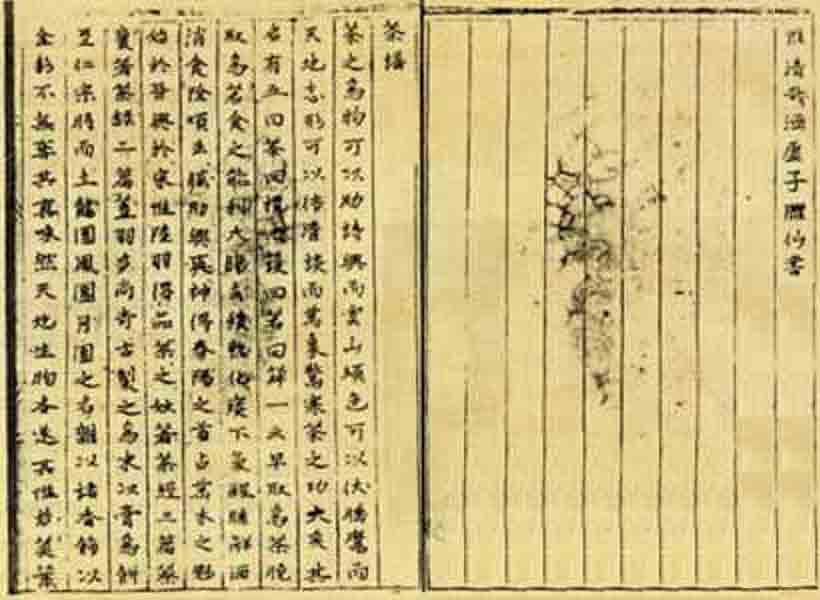 吁清哉涵虛子臞仙書
茶譜
茶之為物可以助詩興而雲山頓色可以伏睡魔而
天地忘形可以倍清談而萬象驚寒茶之功大矣其
名有五曰茶曰檟曰蔎曰茗曰荈一云早取為茶晚
取為茗食之能利大腸去積熱化痰下氣醒睡解酒
消食除煩去膩助興爽神得春陽之首占萬木之魁
始於晉興於宋惟陸羽得品茶之妙著茶經三篇蔡
襄著茶錄二篇蓋羽多尚奇古製之為末以膏為餅
至仁宗時而立龍團鳳團月團之名雜以諸香飾以
金彩不無奪其真味然天地生物各遂其性若莫葉